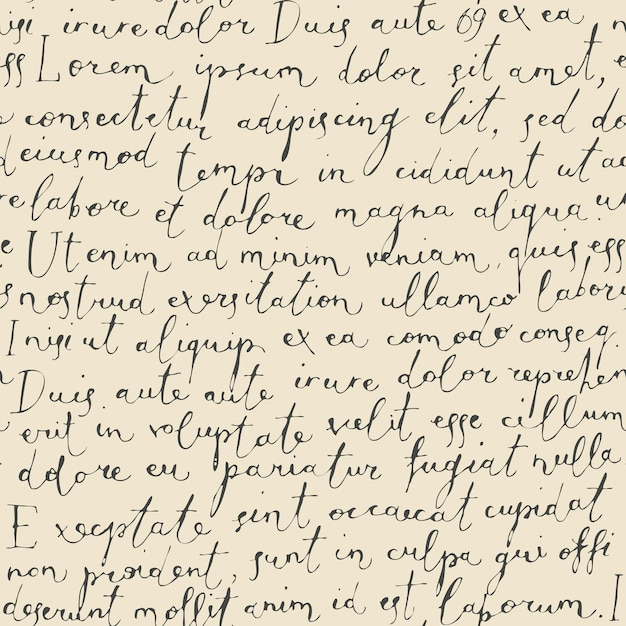 irure dolor Duis aute 69 ex ea
Lorem ipsum dolor sit amet,
consectetur adipiscing elit, sed do
eiusmod tempr in cididunt ut
labore et dolore magna aliqua.
Ut enim ad minim veniam, quis
nostrud exersitation ullamco labor
Inisi ut aliquip ex ea comodo conseq.
Duis aute aute irure dolor reprehen
erit in voluptate velit esse cillum
dolore eu pariatur fugiat nulla
Execptate sint occaecat cupidat
non proident, sunt in culpa qui offi
deserunt mollit anim id est, laborum.